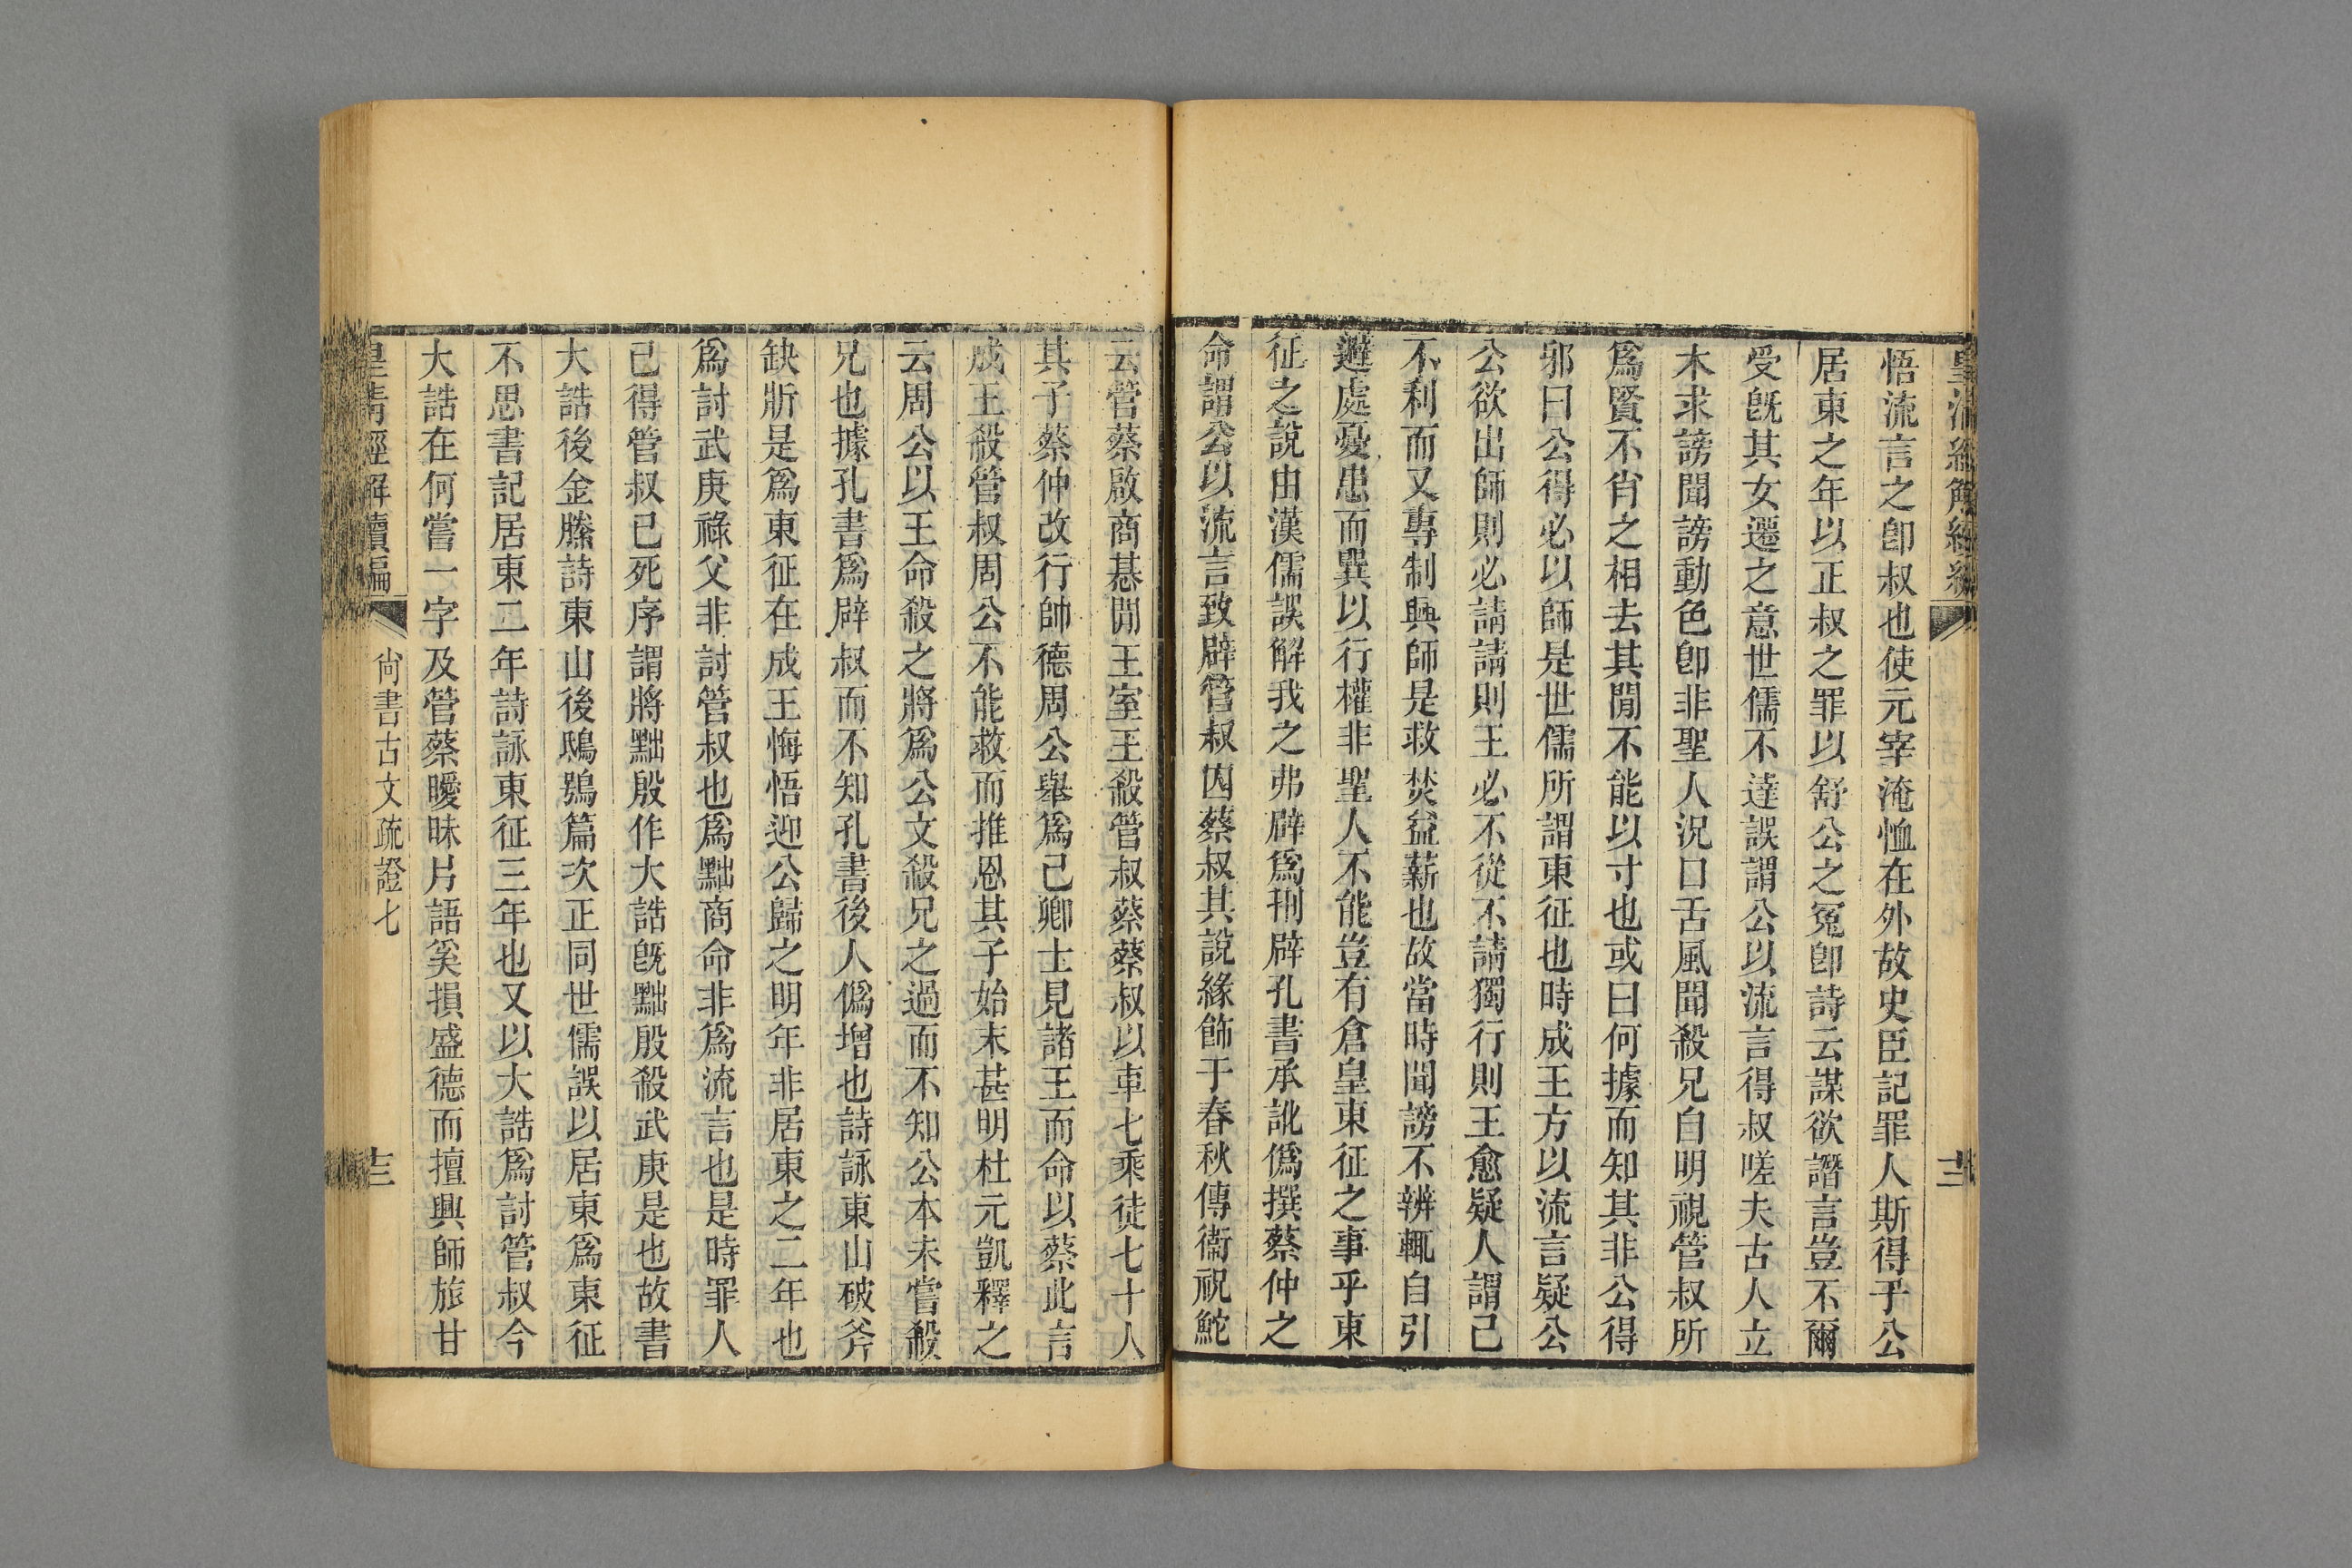 皇清經解續編
悟流言之卽叔也使元宰淹恤在外故史臣記罪人斯得乎公
居東之年以正叔之罪以舒公之冤卽詩云謀欲譖言豈不爾
受旣其女遷之意世儒不達誤謂公以流言得叔嗟夫古人立
木求謗聞謗動色卽非聖人況口舌風聞殺兄自明視管叔所
爲賢不肖之相去其閒不能以寸也或曰何據而知其非公得
邪曰公得必以師是世儒所謂東征也時成王方以流言疑公
公欲出師則必請請則王必不從不請獨行則王愈疑人謂己
不利而又專制興師是救焚益薪也故當時聞謗不辨輒自引
避處憂患而巽以行權非聖人不能豈有倉皇東征之事乎東
征之說由漢儒誤解我之弗辟爲刑辟孔書承訛僞撰蔡仲之
命謂公以流言致辟管叔囚蔡叔其說緣飾于春秋傳衞祝鮀
云管蔡啟商惎閒王室王殺管叔蔡蔡叔以車七乘徒七十人
其子蔡仲改行帥德周公舉爲己卿士見諸王而命以蔡此言
成王殺管叔周公不能救而推恩其子始末甚明杜元凱釋之
云周公以王命殺之將爲公文殺兄之過而不知公本未嘗殺
兄也據孔書爲辟叔而不知孔書後人僞增也詩詠東山破斧
缺斨是爲東征在成王悔悟迎公歸之明年非居東之二年也
爲討武庚祿父非討管叔也爲黜商命非爲流言也是時罪人
已得管叔已死序謂將黜殷作大誥旣黜殷殺武庚是也故書
大誥後金縢詩東山後鴟鴞篇次正同世儒誤以居東爲東征
不思書記居東二年詩詠東征三年也又以大誥爲討管叔今
大誥在何嘗一字及管蔡曖昧片語奚損盛德而擅興師旅甘
皇清經解續編 尚書古文疏證七 十三